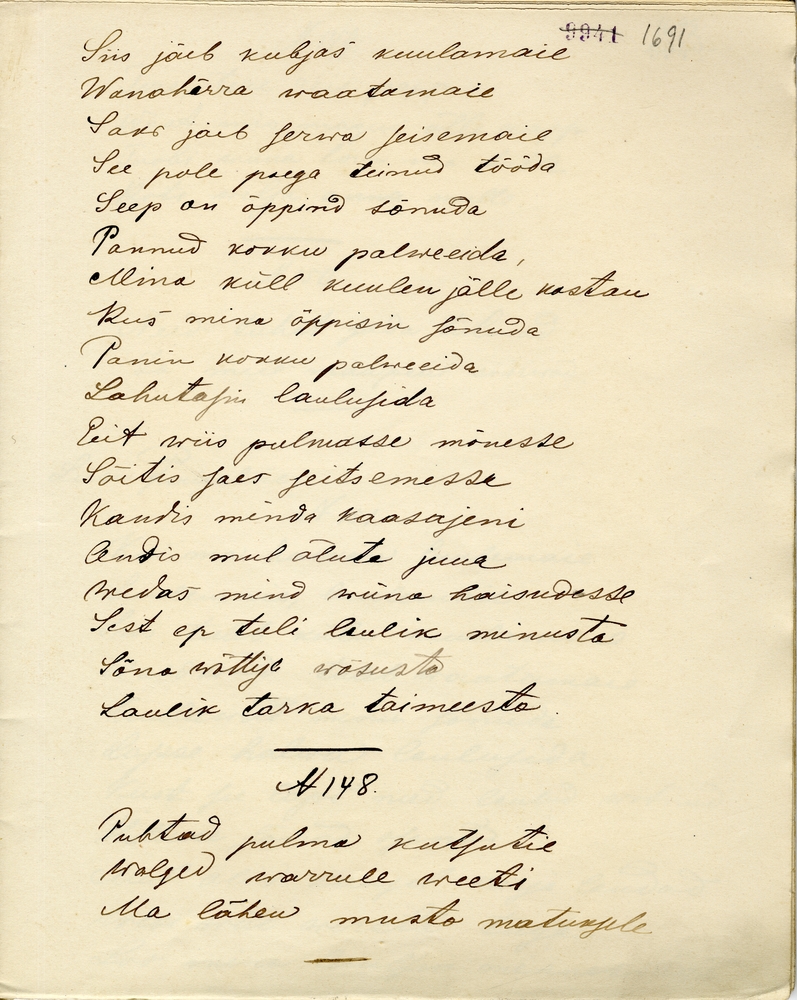 9941 1691
Siis jäeb kubjas kuulamaie
Wanahärra waatamaie
Saks jäeb serwa seisemaie
See pole poega teinud tööda
Seep on õppind sõnuda
Pannud kokku palweeida,
Mina küll kuulen jälle kostan
Kus mina õppisin sõnuda
Panin kokku palweeida
Lahutasin laulusida
Eit wiis pulmasse mõnesse
Sõitis saes seitsemesse
Kandis minda kaasajeni
Andis mul õluta juua
wedas mind wiina haisudesse
Sest ep tuli laulik minusta
Sõna wõttija wõsusta
Laulik tarka taimeesta.
N 148.
Puhtad pulma kutsutie
walged warrule weeti
Ma lähen musta matuksele